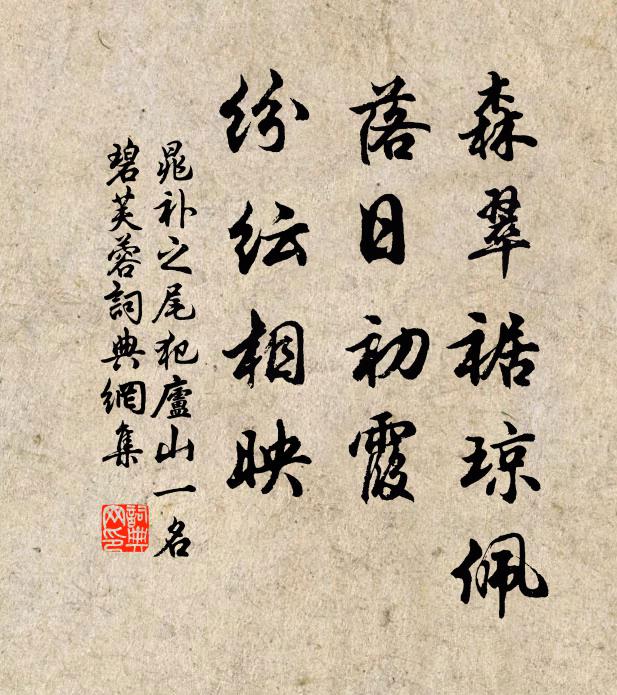 森翠裾琼佩
落日初霞
纷纭相映
晁补之尾犯廬山一名
碧芙蓉詞典網集
詞典